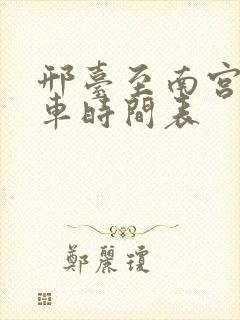 邢臺至南宮
車時間表
鄭麗瓊